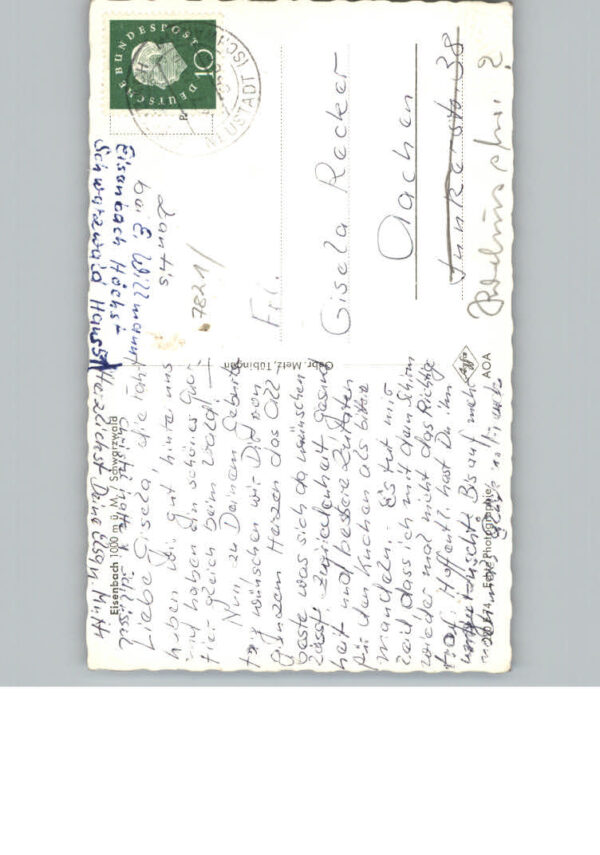 Eisenbach 1000 m ü. M. Schwarzwald
Liebe Gisela, die Fahrt
haben wir gut hinter uns
und haben ein schönes
gleich beim Wald!
Nun zu Deinem Geburts-
tag wünschen wir Dir von
ganzem Herzen das All
beste was sich da wünschen
lässt. Zufriedenheit, Gesund
heit und bessere Zutaten
für den Kuchen als bittre
mandeln. Es tut mir
leid dass ich mit dem Shirm
wieder mal nicht das Richtige
traf. Hoffentl. hast Du ihn
umgetauscht. Bis auf
Herzlichst Deine
Gebr. Metz, Tübingen
Agfa
AOA
Echte Photographie
DEUTSCHE BUNDESPOST
10
NEUSTADT (SCHWARZW)
bei E. Willmann
Eisenbach Höchst
Schwarzwald Haus
7821/
Frl.
Gisela Recker
Aachen
Junkerstr. 38